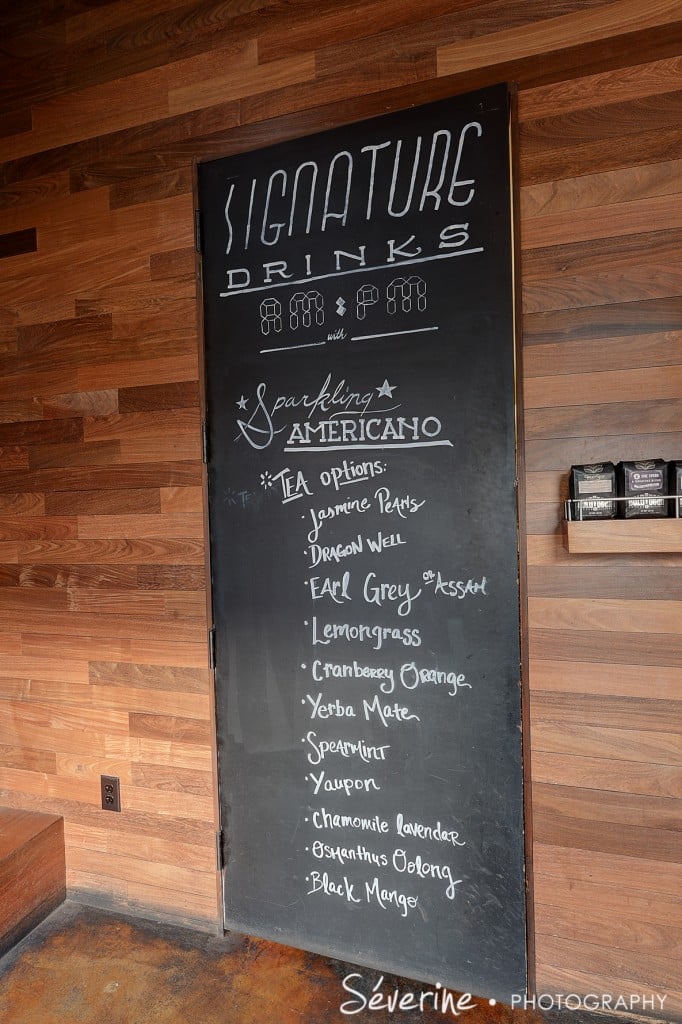 SIGNATURE
DRINKS
AM:PM
with
Sparkling
AMERICANO
TEA options:
· Jasmine Pearls
· DRAGON WELL
· EArl Grey or ASSAM
· Lemongrass
· Cranberry Orange
· Yerba Mate
· SPEARMINT
· Yaupon
· Chamomile lavendar
· Osmanthus Oolong
· Black Mango
Séverine · PHOTOGRAPHY